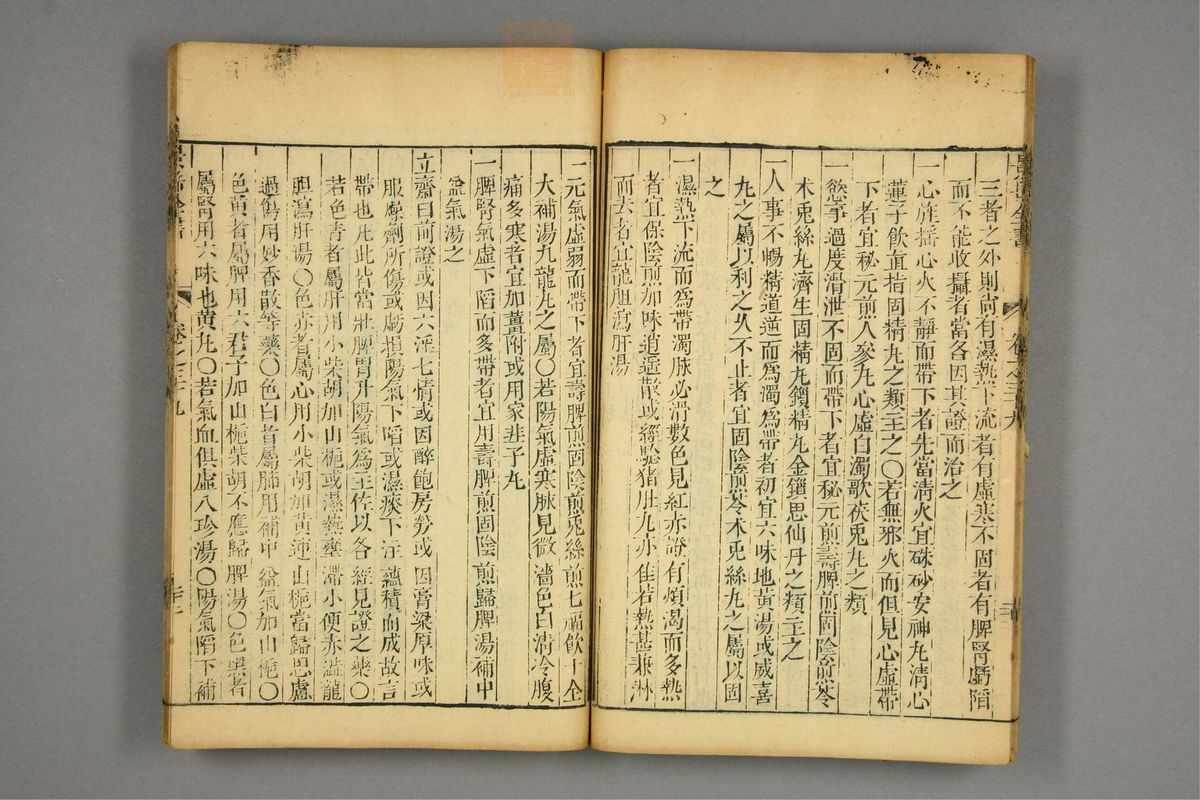 三者之外則尚有濕熱下流者有虛寒不固者有脾腎虧陷
而不能收攝者當各因其證而治之
一心旌搖心火不靜而帶下者先當清火宜硃砂安神丸清心
蓮子飲直指固精丸之類主之〇若無邪火而但見心虛帶
下者宜秘元煎人參丸心虛白濁歌茯兎丸之類
一慾事過度滑泄不固而帶下者宜秘元煎壽脾煎固陰煎苓
朮兎絲丸濟生固精丸鎖精丸金鎖思仙丹之類主之
一人事不暢精道逆而爲濁爲帶者初宜六味地黃湯或威喜
丸之屬以利之久不止者宜固陰煎苓朮兎絲丸之屬以固
之
一濕熱下流而爲帶濁脉必滑數色見紅赤證有煩渴而多熱
者宜保陰煎加味逍遥散或經驗猪肚丸亦佳若熱甚兼淋
而去者宜龍胆瀉肝湯
一元氣虛弱而帶下者宜壽脾煎固陰煎兎絲煎七福飲十全
大補湯九龍丸之屬〇若陽氣虛寒脉見微濇色白清冷腹
痛多寒者宜加薑附或用家韭子丸
一脾腎氣虛下陷而多帶者宜用壽脾煎固陰煎歸脾湯補中
益氣湯之
立齋曰前證或因六淫七情或因醉飽房勞或因膏粱厚味或
服燥劑所傷或虧損陽氣下陷或濕痰下注蘊積而成故言
帶也凡此皆當壯脾胃升陽氣爲主佐以各經見證之藥〇
若色青者屬肝用小柴胡加山梔或濕熱壅滯小便赤澁龍
胆瀉肝湯〇色赤者屬心用小柴胡加黄連山梔當歸思慮
過傷用妙香散等藥〇色白者屬肺用補中益氣加山梔〇
色黄者屬脾用六君子加山梔柴胡不應歸脾湯〇色黑者
屬腎用六味地黄丸〇若氣血俱虛八珍湯〇陽氣陷下補
景岳全書
卷之三十九